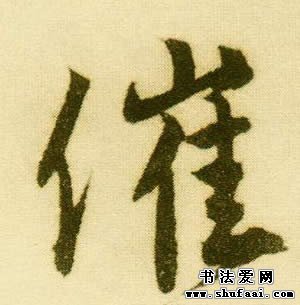 催
书法爱网
www.shufaai.com